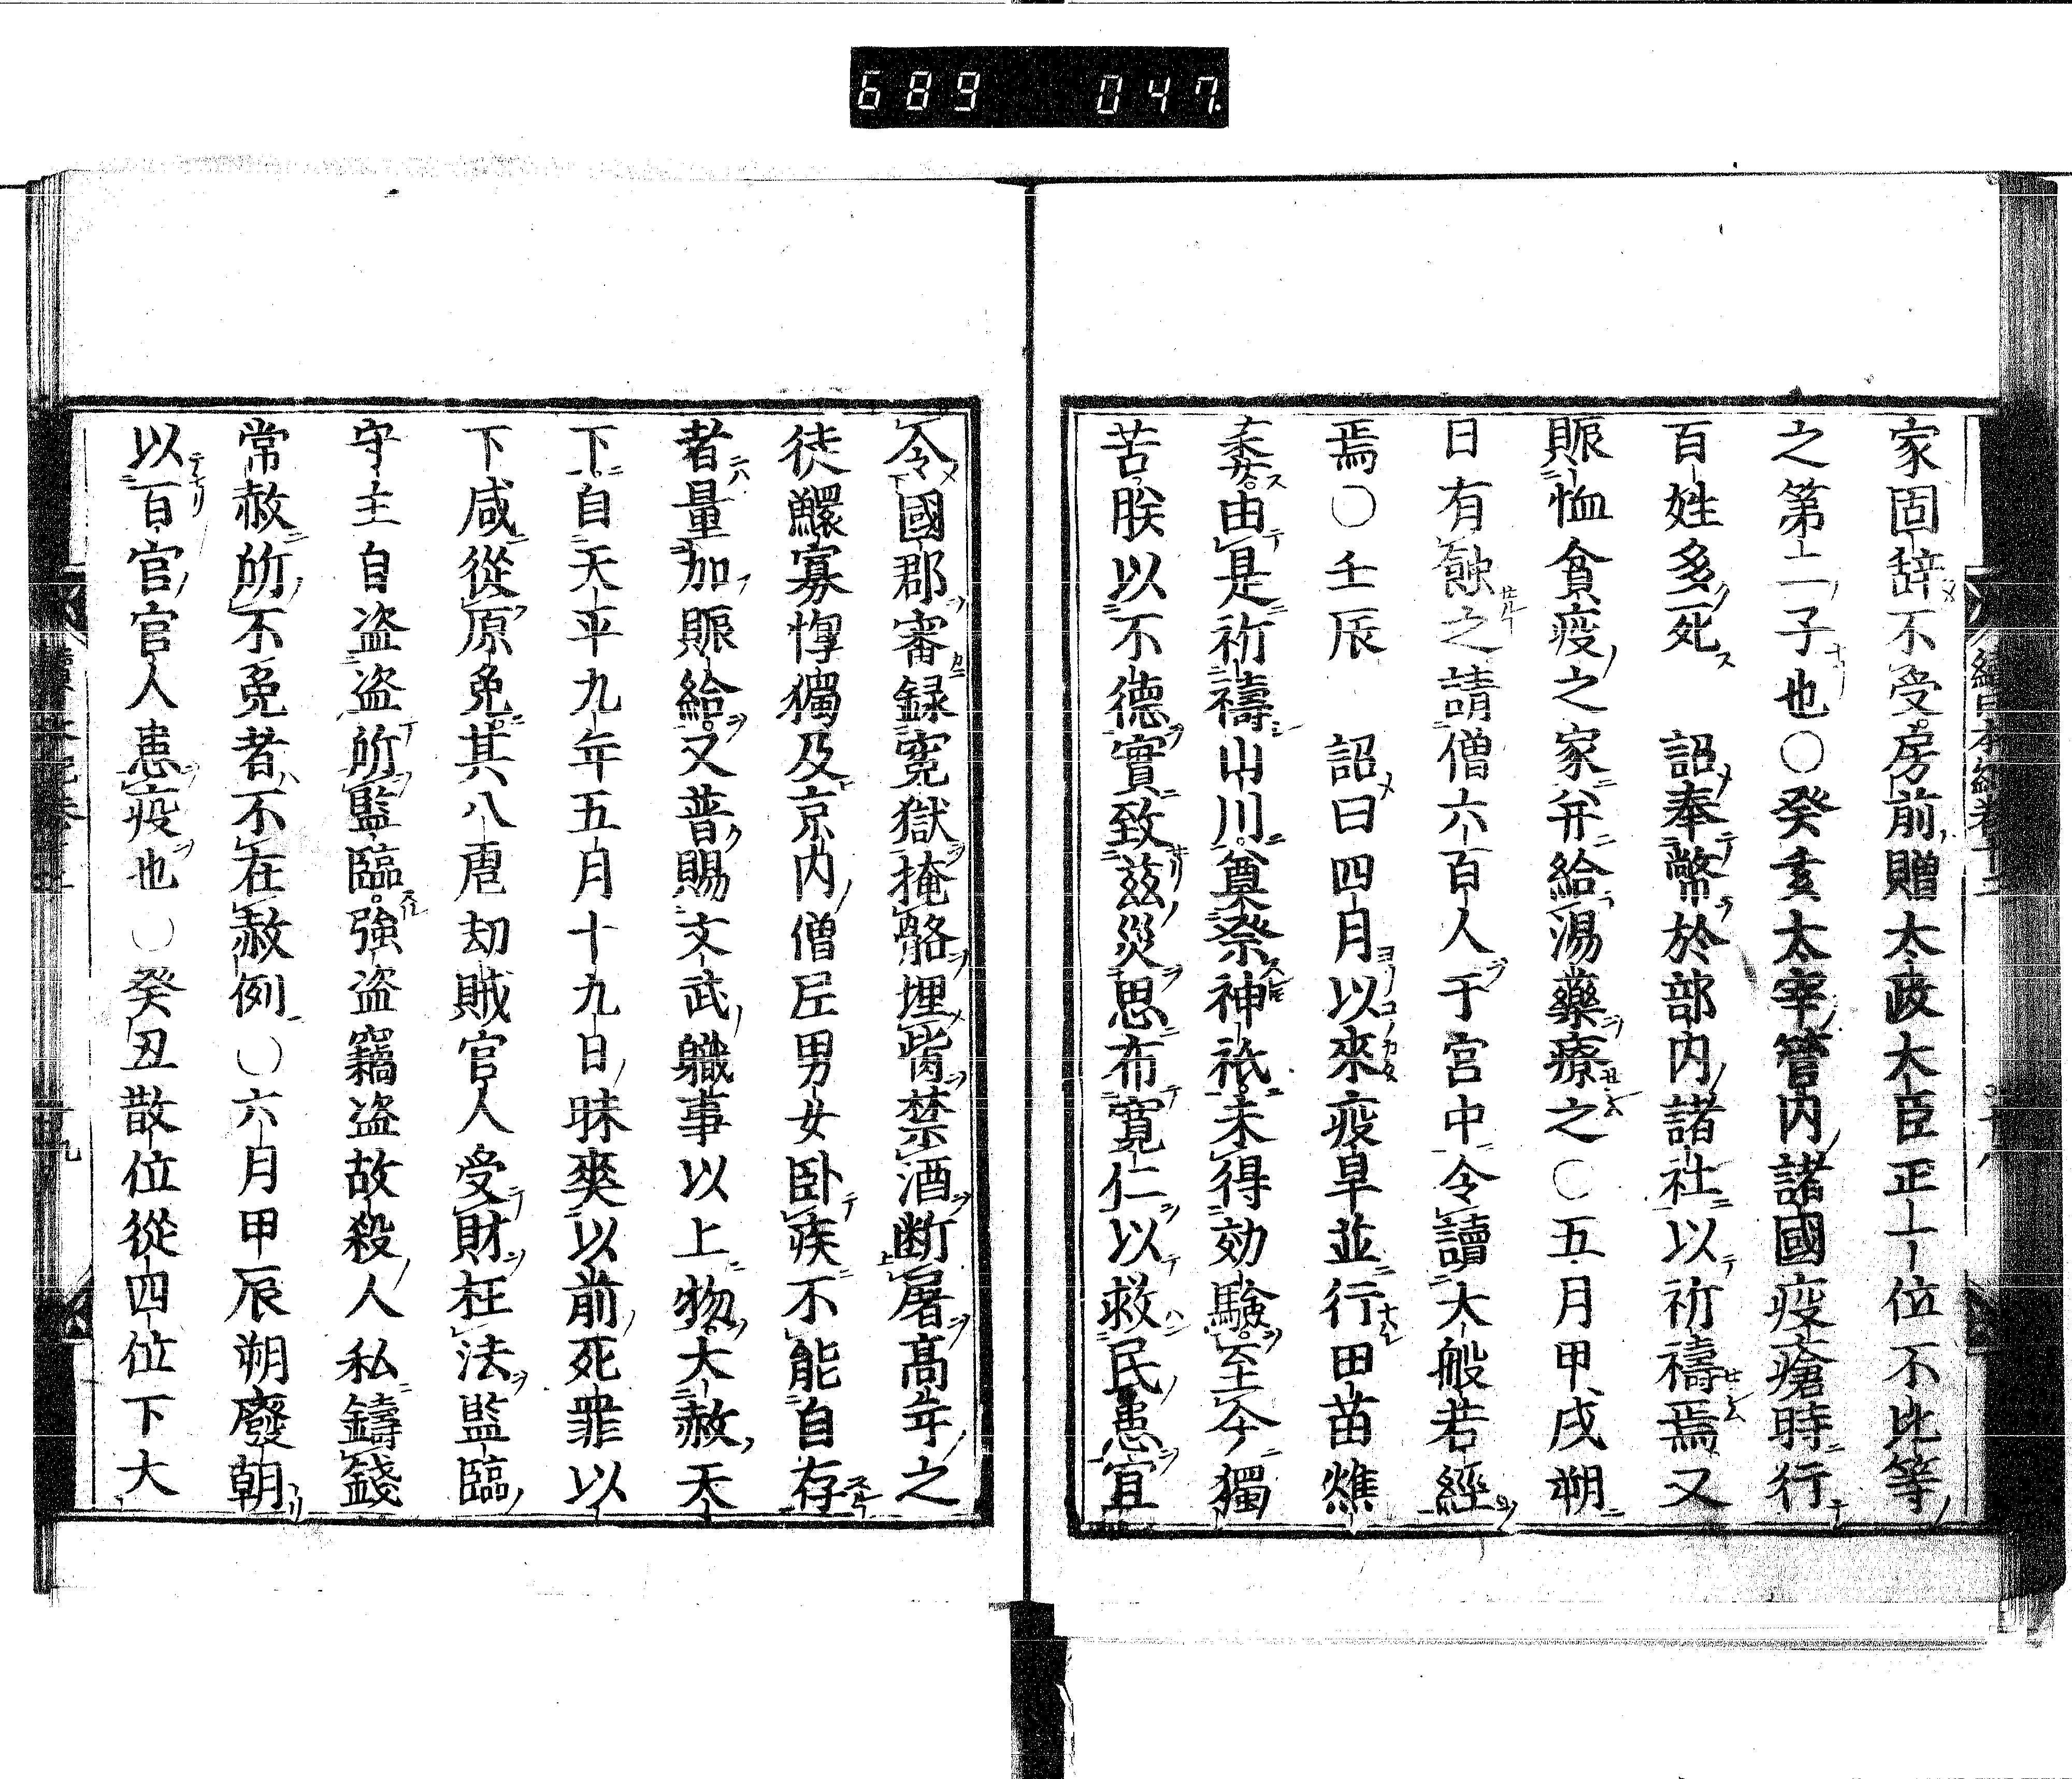 689 047
家固辞不受房前贈太政大臣正一位不比等
之第二子也○癸亥太宰管内諸國疫瘡時行
百姓多死 詔奉幣於部内諸社以祈禱焉又
賑恤貧疫之家并給湯藥療之○五月甲戌朔
日有蝕之請僧六百人于宮中令讀大般若經
焉○壬辰 詔曰四月以來疫旱並行田苗燋
萎由是祈禱山川奠祭神祇未得効驗至今獨
苦朕以不德實致茲災思布寬仁以救民患宜
令國郡審録寃獄掩骼埋胔禁酒断屠高年之
徒鰥寡惸獨及京内僧尼男女卧疾不能自存
者量加賑給又普賜文武職事以上物大赦天
下自天平九年五月十九日昧爽以前死罪以
下咸從原免其八虐劫賊官人受財枉法監臨
守主自盗盗所監臨強盗竊盗故殺人私鑄錢
常赦所不免者不在赦例○六月甲辰朔廢朝
以百官官人患疫也○癸丑散位從四位下大